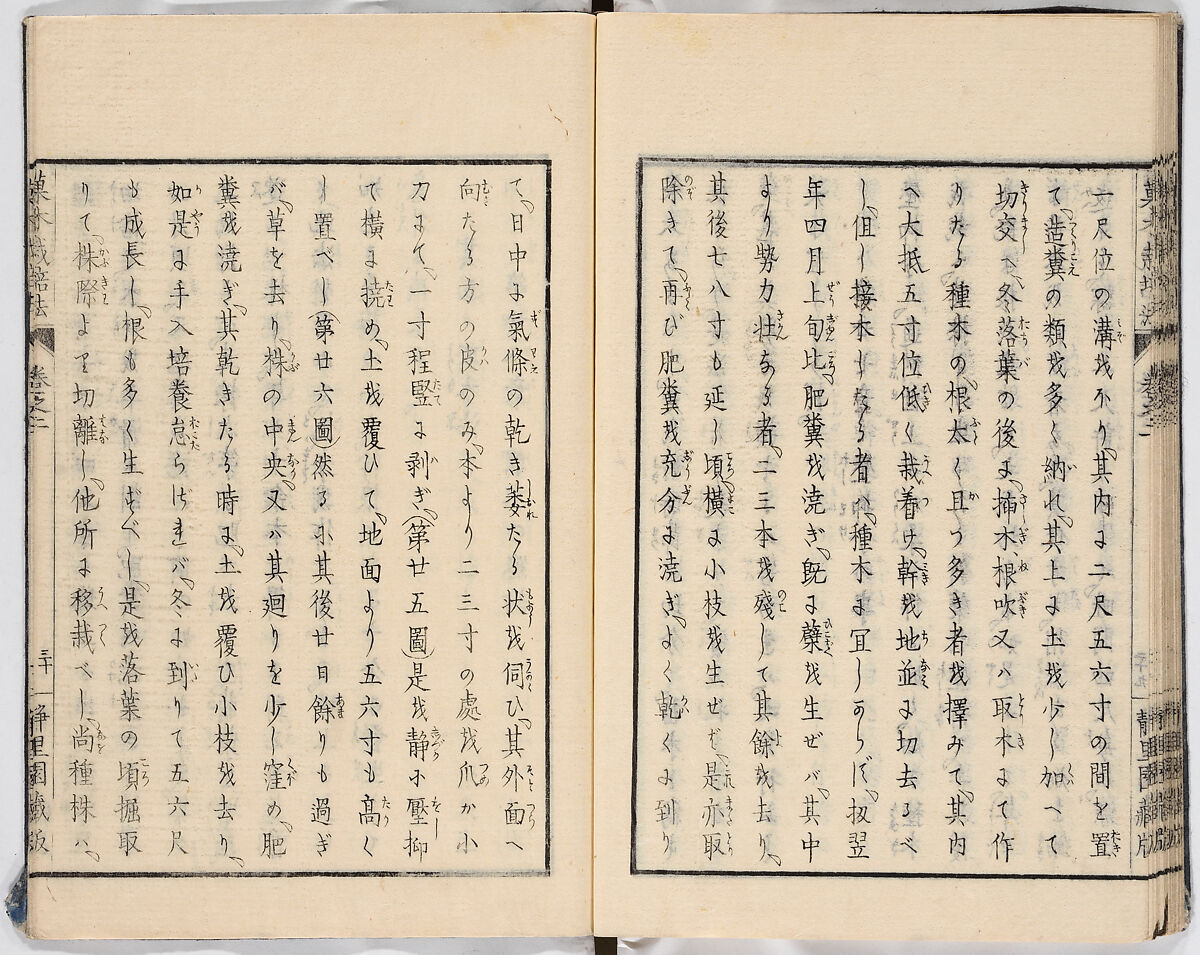 一尺位の溝をホり、其内に二尺五六寸の間を置
て、造糞の類を多く納れ、其上に土を少し加へて
切交へ、冬落葉の後に、挿木、根吹又ハ取木にて作
りたる種木の、根太く且つ多き者を擇みて、其内
へ大抵五寸位低く栽着け、幹を地並に切去るべ
し、但し接木したる者ハ、種木に冝しからず、扨翌
年四月上旬比、肥糞を澆ぎ、既に蘖を生ぜバ、其中
より勢力壮なる者、二三本を殘して其餘を去り、
其後七八寸も延し頃、横に小枝を生ぜば、是亦取
除きて、再び肥糞を充分に澆ぎ、よく乾くに到り
て、日中に氣條の乾き萎たる状を伺ひ、其外面へ
向たる方の皮のみ、本より二三寸の處を爪か小
刀にて、一寸程竪に剥ぎ、(第廿五圖)是を静に壓抑
て横に撓め、土を覆ひて、地面より五六寸も髙く
し置べし(第廿六圖)然るに其後廿日餘りも過ぎ
バ、草を去り、株の中央、又ハ其廻りを少し窪め、肥
糞を澆ぎ、其乾きたる時に、土を覆ひ小枝を去り、
如是に手入培養怠らざれバ、冬に到りて五六尺
も成長し、根も多く生ずべし、是を落葉の頃掘取
りて、株際より切離し、他所に移栽べし、尚種株ハ、
菓木栽培法 卷之二 三十 静里園藏版